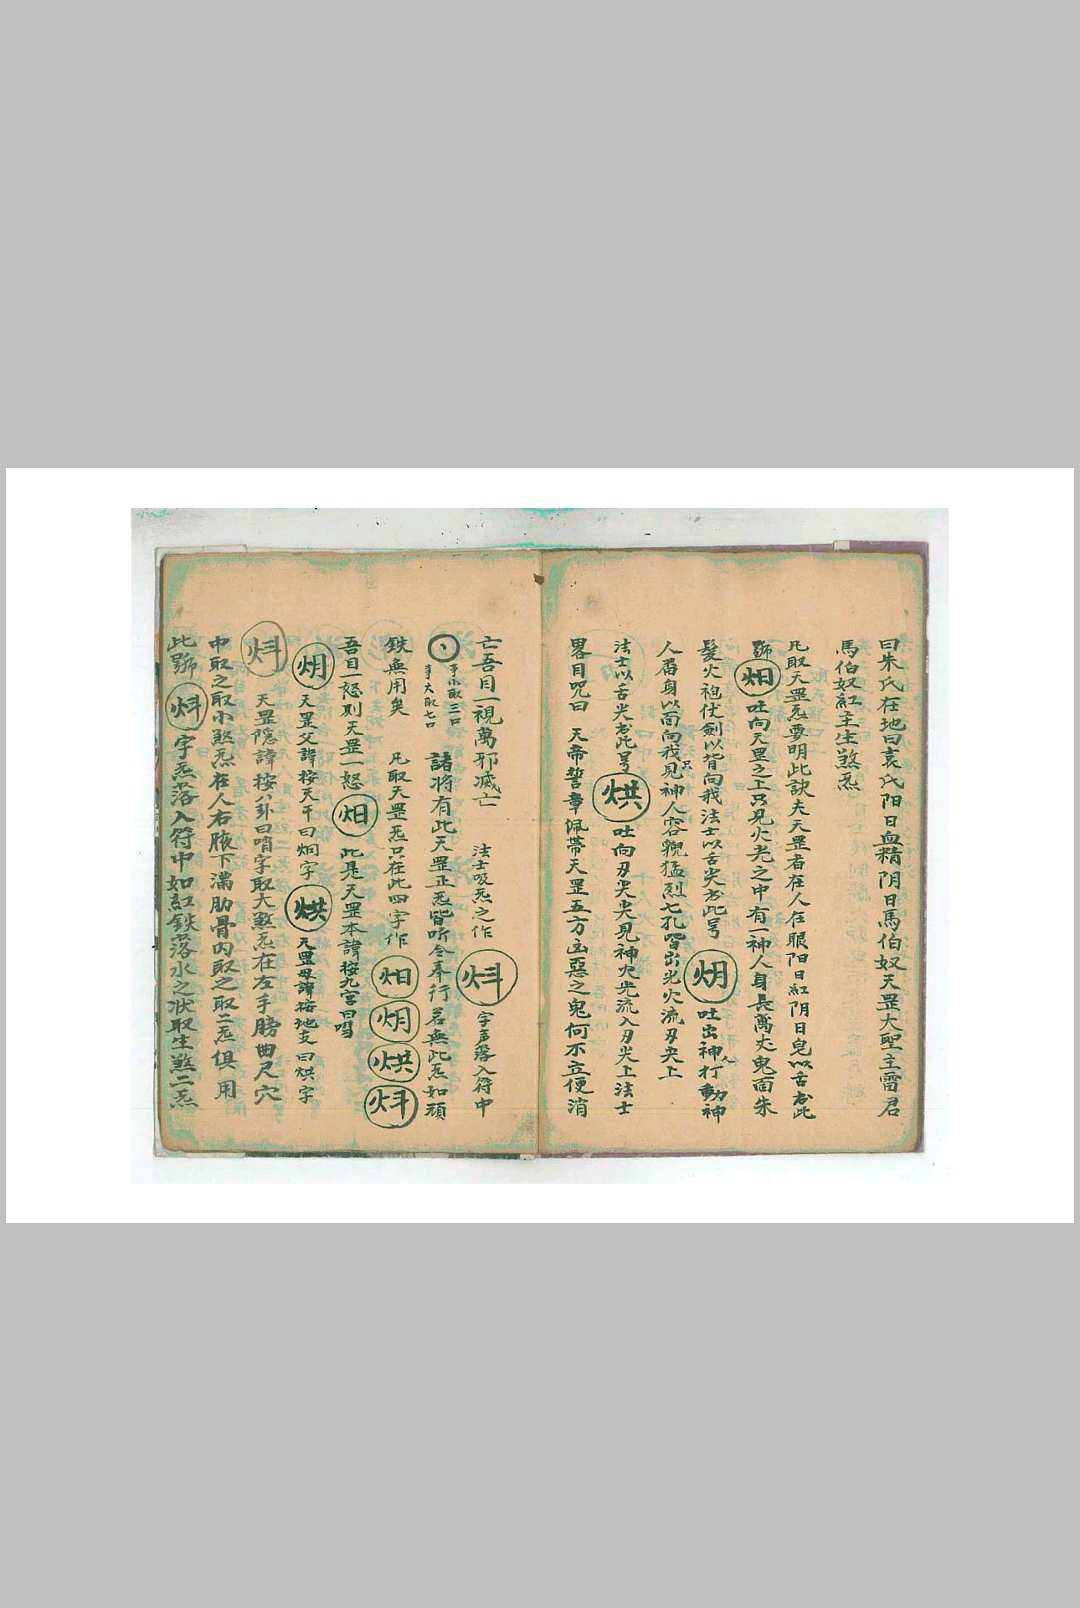 曰朱氏在地曰袁氏阳日血精阴日馬伯奴天罡大聖主雷君
馬伯奴紅主生煞炁
凡取天罡炁要明此訣夫天罡者在人在眼阳日紅阴日皂以舌書此
號㶰吐向天罡之上只見火光之中有一神人身長萬丈鬼面朱
髮火袍仗劍以背向我法士以舌尖書此号炪吐出神人打動神
人畨身以面向我只見神人容貌猛烈七孔皆出光火流刃尖上
法士以舌尖書此号烘吐向刃尖尖見神火光流入刃尖上法士
畧目咒曰 天帝誓章佩帶天罡五方凶惡之鬼何不立便消
亡吾目一視萬邪滅亡 法士吸炁之作㪵字炁落入符中
小取三口
大取七口
諸将有此天罡正炁皆听令奉行若無此炁如頑
鉄無用矣 凡取天罡炁只在此四字作
吾目一怒則天罡一怒 此是天罡本諱按九宮曰
天罡父諱按天干曰炯字 烘 天罡母諱按地支曰烘字
天罡隐諱按八卦曰 字取大煞炁在左手膀曲尺穴
中取之取小煞炁在人右腋下滿肋骨内取之取二炁俱用
此號 字炁落入符中如紅鉄落水之状取生煞二炁